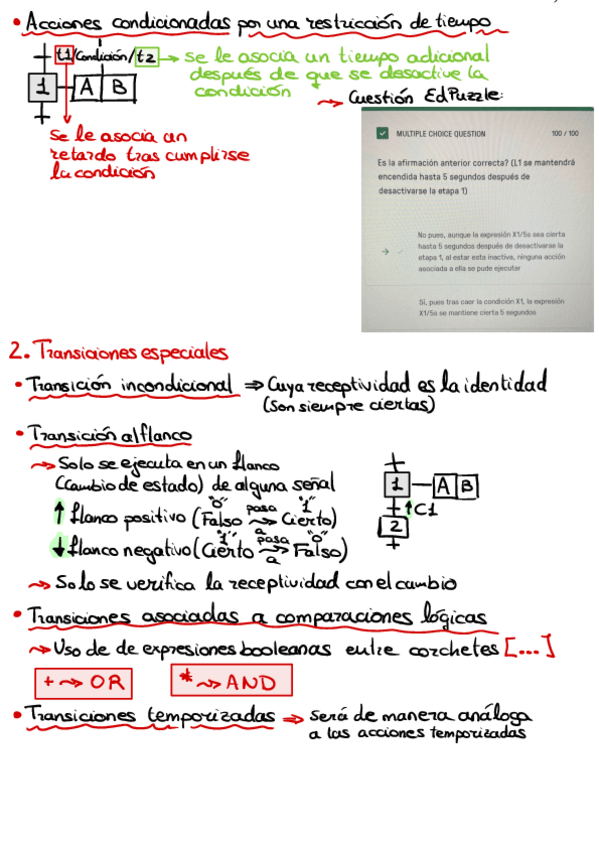 • Acciones condicionadas por una restricción de tiempo
t1/Condición/t2 → se le asocia un tiempo adicional
después de que se desactive la
condición
1 A B
Se le asocia un
retardo tras cumplirse
la condición
⇝ Cuestión EdPuzzle:
MULTIPLE CHOICE QUESTION 100 / 100
Es la afirmación anterior correcta? (L1 se mantendrá
encendida hasta 5 segundos después de
desactivarse la etapa 1)
No pues, aunque la expresión X1/5s sea cierta
hasta 5 segundos después de desactivarse la
etapa 1, al estar esta inactiva, ninguna acción
asociada a ella se pude ejecutar
Sí, pues tras caer la condición X1, la expresión
X1/5s se mantiene cierta 5 segundos
2. Transiciones especiales
• Transición incondicional ⇒ Cuya receptividad es la identidad
(Son siempre ciertas)
• Transición al flanco
⇝ Solo se ejecuta en un flanco
(Cambio de estado) de alguna señal
"0" pasa "1"
↑ flanco positivo (Falso ⇝ Cierto)
a
"1" pasa "0"
↓ flanco negativo (Cierto ⇝ Falso)
a
1 A B
↑C1
2
⇝ Solo se verifica la receptividad con el cambio
• Transiciones asociadas a comparaciones lógicas
⇝ Uso de de expresiones booleanas entre corchetes [...]
+ ⇝ OR * ⇝ AND
• Transiciones temporizadas ⇒ Será de manera análoga
a las acciones temporizadas